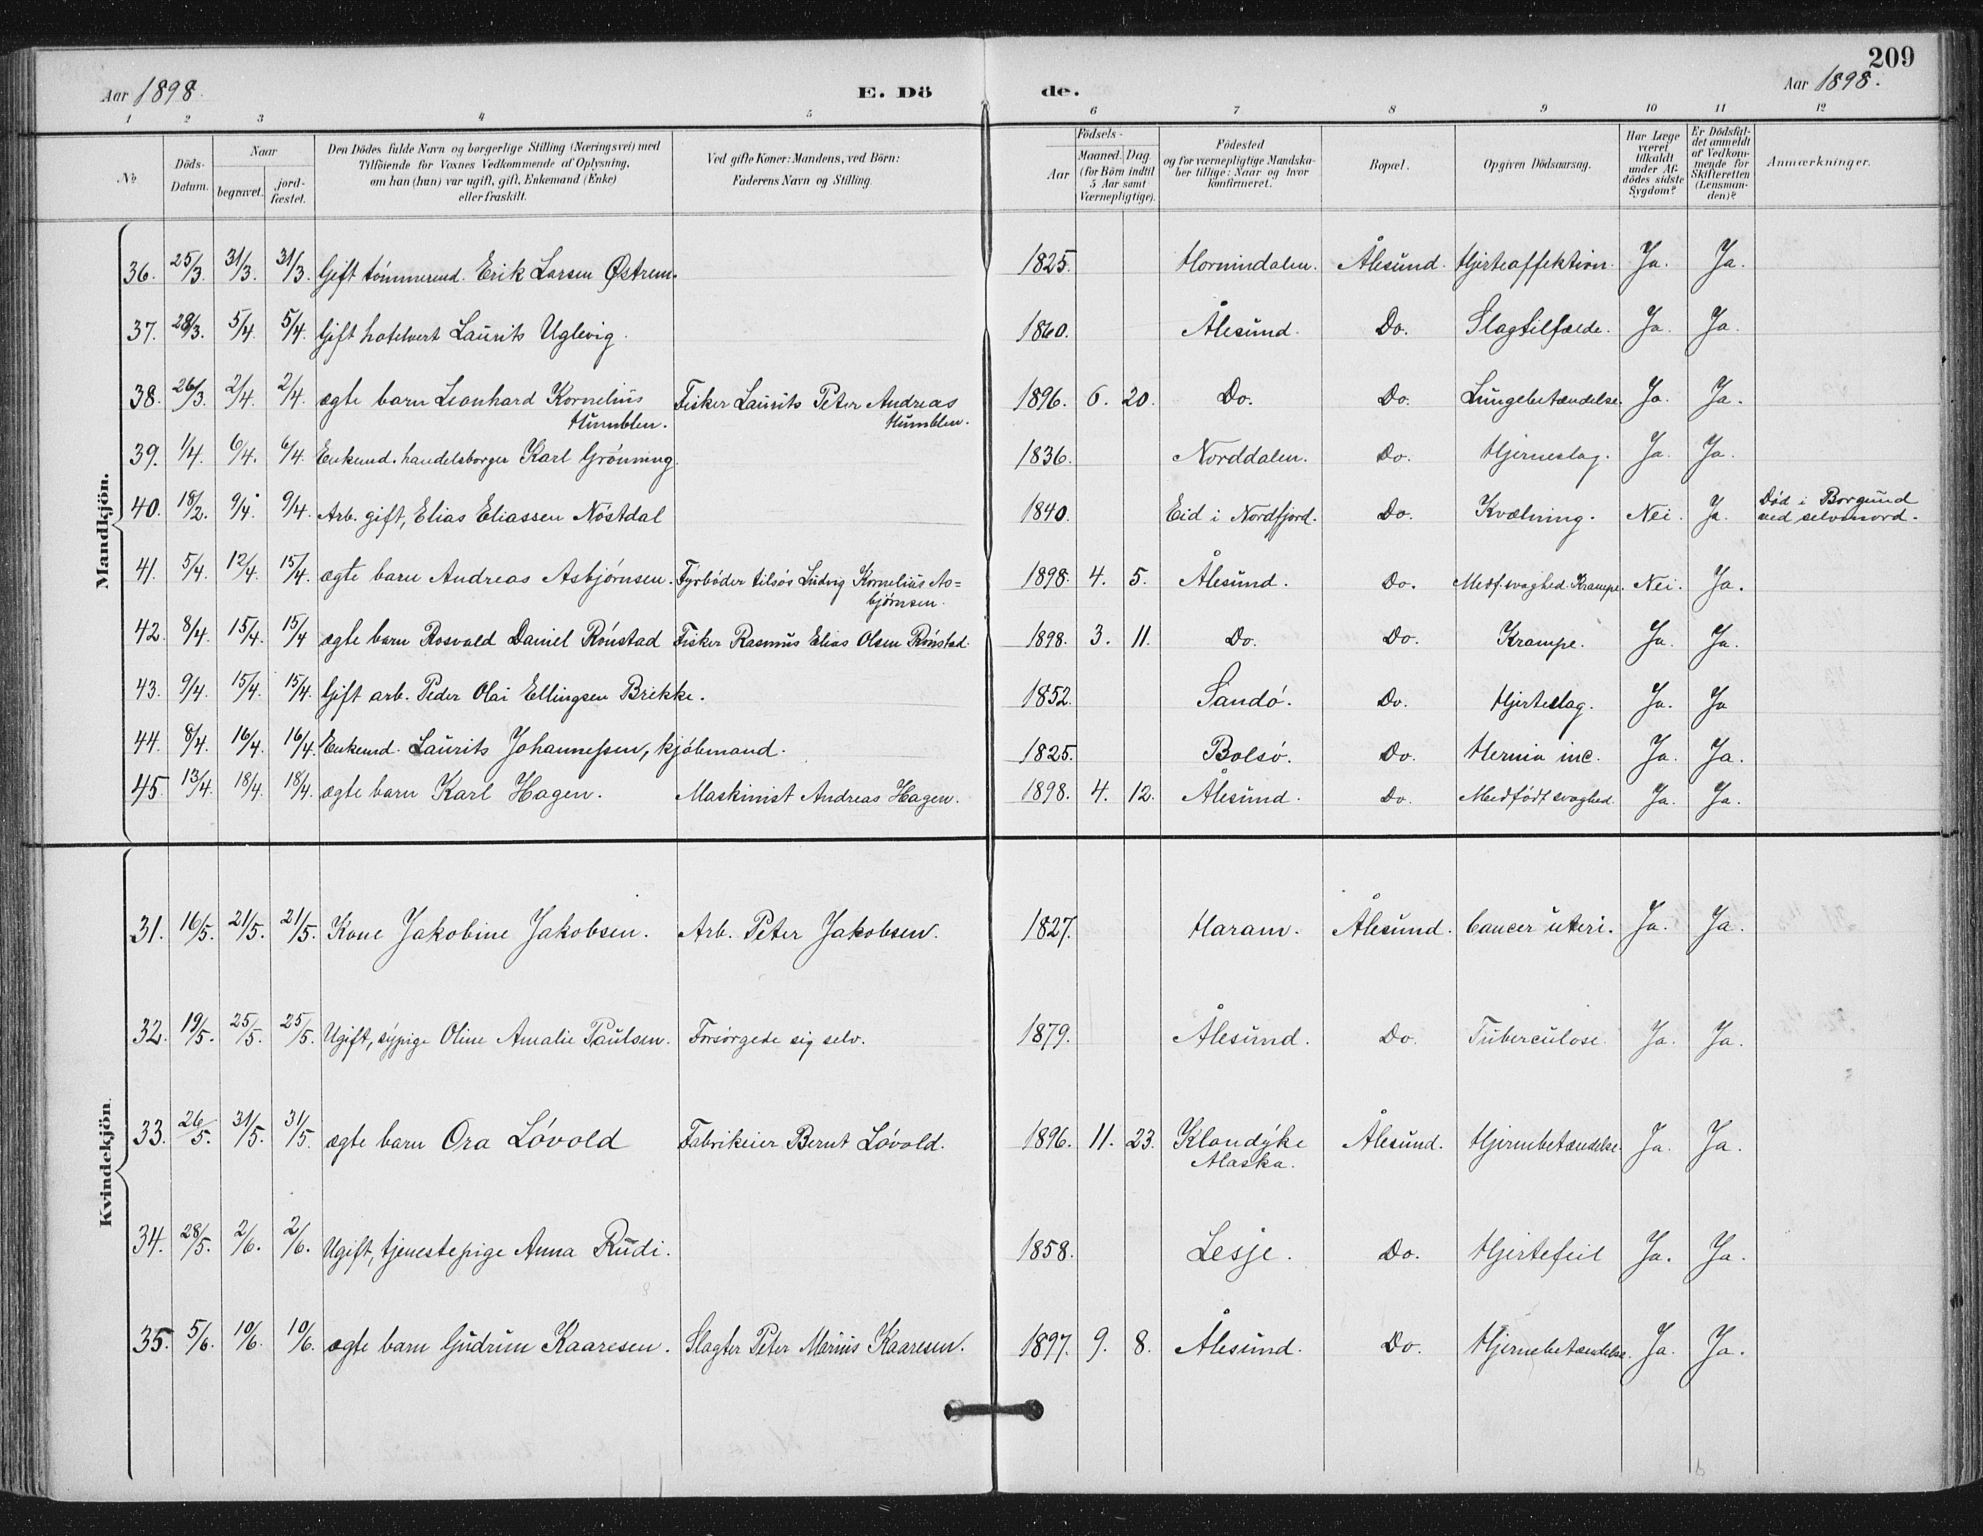 209
Aar 1898.
E. Dö de.
Aar 1898.
1 2 3 4 5 6 7 8 9 10 11 12
№
Döds-Datum.
Naar
begravet.
jord-fæstet.
Den Dödes fulde Navn og borgerlige Stilling (Næringsvei) med
Tilföiende for Voxnes Vedkommende af Oplysning,
om han (hun) var ugift, gift, Enkemand (Enke)
eller fraskilt.
Ved gifte Koner: Mandens, ved Börn:
Faderens Navn og Stilling.
Födsels-
Aar
Maaned. Dag
(for Börn indtil
5 Aar samt
Værnepligtige).
Födested
og for værnepligtige Mandska-
ber tillige: Naar og hvor
konfirmeret.
Bopæl.
Opgiven Dödsaarsag.
Har Læge
været
tilkaldt
under Af-
dödes sidste
Sygdom?
Er Dödsfal-
det anmeldt
af Vedkom-
mende for
Skifteretten
(Lensman-
den)?
Anmærkninger.
Mandkjön.
36. 25/3. 31/3. 31/3. Gift tömmermd. Erik Larsen Østrem. 1825. Hornindalen. Ålesund. Hjerteaffektion. Ja. Ja.
37. 28/3. 5/4. 5/4. Gift hotelvert Laurits Uglevig. 1860. Ålesund. Do. Slagtilfælde. Ja. Ja.
38. 26/3. 2/4. 2/4. ægte barn Leonhard Kornelius Fisker Laurits Peter Andreas 1896. 6. 20. Do. Do. Lungebetændelse. Ja. Ja.
Humblen. Humblen.
39. 1/4. 6/4. 6/4. Enkemd. handelsborger Karl Grönning. 1836. Norddalen. Do. Hjerneslag. Ja. Ja.
40. 18/2. 9/4. 9/4. Arb. gift, Elias Eliassen Nöstdal 1840. Eid i Nordfjord. Do. Kvælning. Nei. Ja. Död i Borgund
ved selvmord.
41. 5/4. 12/4. 15/4. ægte barn Andreas Asbjørnsen. Fyrböder tilsös Ludvig Kornelius As- 1898. 4. 5. Ålesund. Do. Medf. svaghed. Krampe. Nei. Ja.
bjørnsen.
42. 8/4. 15/4. 15/4 ægte barn Rosvald Daniel Rönstad Fisker Rasmus Elias Olsen Rönstad. 1898. 3. 11. Do. Do. Krampe. Ja. Ja.
43. 9/4. 15/4. 15/4. Gift arb. Peder Olai Ellingsen Brekke. 1852. Sandö. Do. Hjerteslag. Ja. Ja
44. 8/4. 16/4. 16/4. Enkemd. Laurits Johannessen, kjöbmand. 1825. Bolsö. Do. Hernia inc. Ja. Ja.
45. 13/4. 18/4. 18/4. ægte barn Karl Hagen. Maskinist Andreas Hagen. 1898. 4. 12. Ålesund. Do. Medfödt svaghed. Ja. Ja.
Kvindekjön.
31. 16/5. 21/5. 21/5. Kone Jakobine Jakobsen. Arb. Peter Jakobsen. 1827. Haram. Ålesund. Cancer uteri. Ja. Ja.
32. 19/5. 25/5. 25/5. Ugift, sypige Oline Amalie Paulsen. Forsørgede sig selv. 1879. Ålesund. Do. Tuberculose. Ja. Ja.
33. 26/5. 31/5. 31/5. ægte barn Ora Lövold Fabrikeier Bernt Lövold. 1896. 11. 23. Klondyke Ålesund. Hjernebetændelse. Ja. Ja.
Alaska.
34. 28/5. 2/6. 2/6. Ugift, tjenestepige Anna Rudi. 1858. Lesje. Do. Hjertefeil Ja. Ja.
35. 5/6. 10/6. 10/6. ægte barn Gudrun Kaaresen. Slagter Peter Marius Kaaresen. 1897. 9. 8. Ålesund. Do. Hjernebetændelse. Ja. Ja.